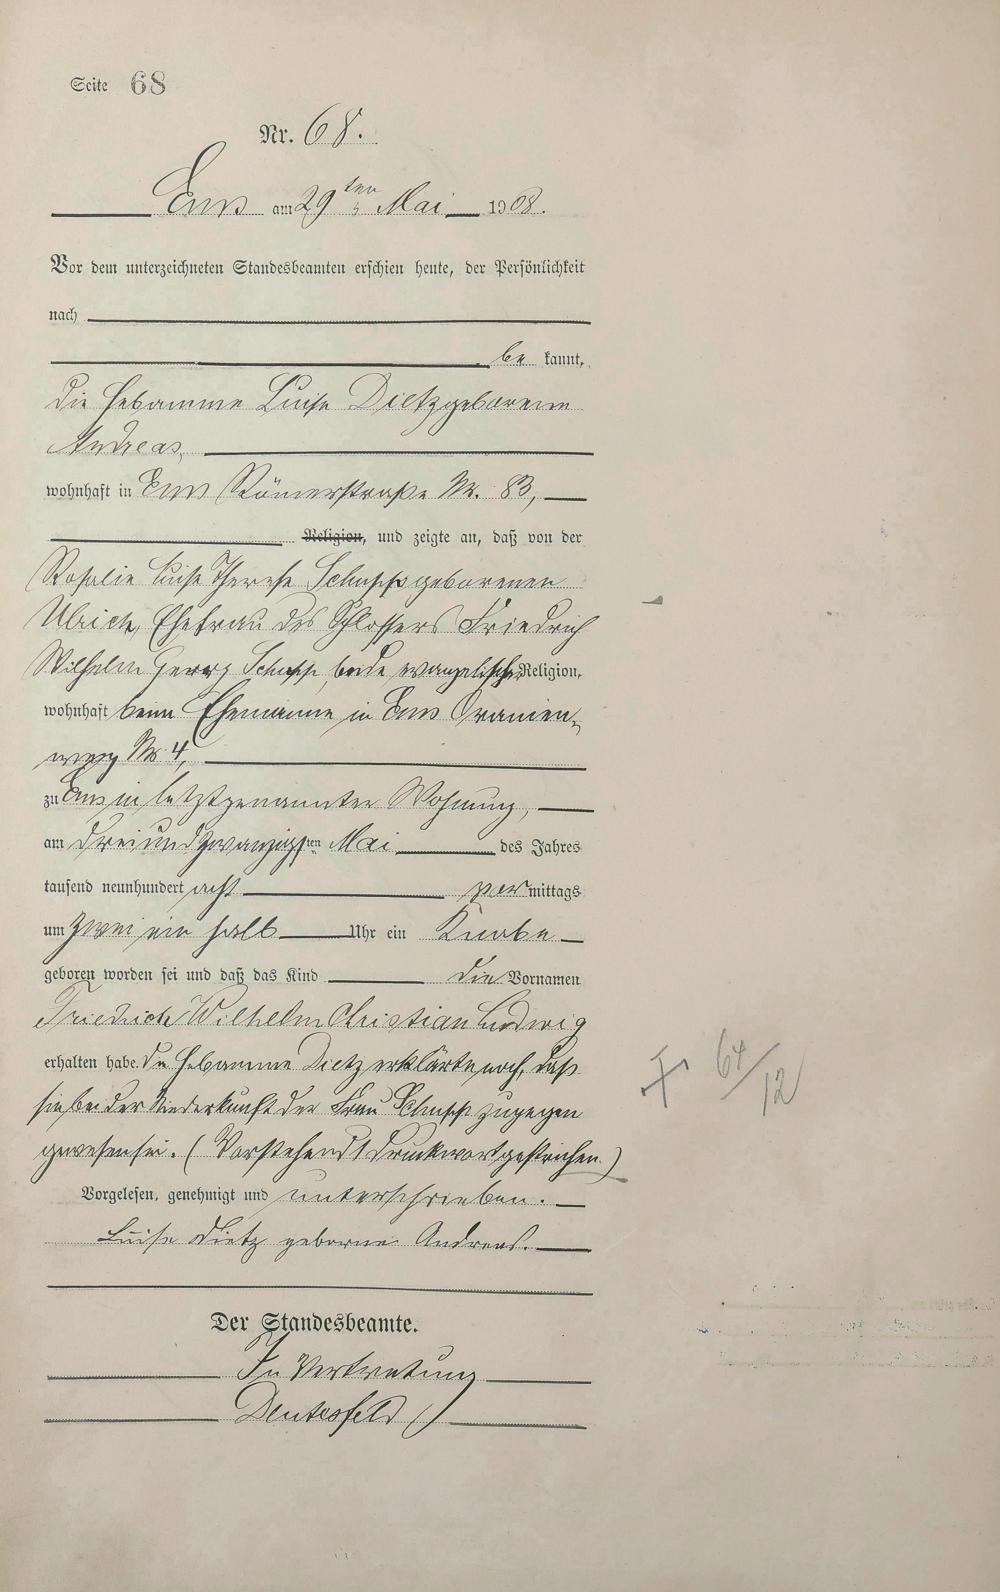 Seite 68
Nr. 68.
Ems am 29ten Mai 1908.
Vor dem unterzeichneten Standesbeamten erschien heute, der Persönlichkeit
nach
be kannt,
die Hebamme Luise Dietz geborene
Andreas,
wohnhaft in Ems Römerstraße Nr. 83,
Religion, und zeigte an, daß von der
Rosalie Luise Therese Schupp geborenen
Ulrich, Ehefrau des Schlossers Friedrich
Wilhelm Georg Schupp, beide evangelischer Religion,
wohnhaft beim Ehemanne in Ems Oranien-
weg Nr. 4,
zu Ems in letztgenannter Wohnung,
am dreiundzwanzigsten Mai des Jahres
tausend neunhundert acht vormittags
um zwei ein halb Uhr ein Knabe
geboren worden sei und daß das Kind die Vornamen
Friedrich Wilhelm Christian Ludwig
erhalten habe. Die Hebamme Dietz erklärte noch, daß
sie bei der Niederkunft der Frau Schupp zugegen
gewesen sei. (Vorstehend 1 Druckwort gestrichen.)
Vorgelesen, genehmigt und unterschrieben.
Luise Dietz geborne Andreas.
Der Standesbeamte.
In Vertretung
64/12